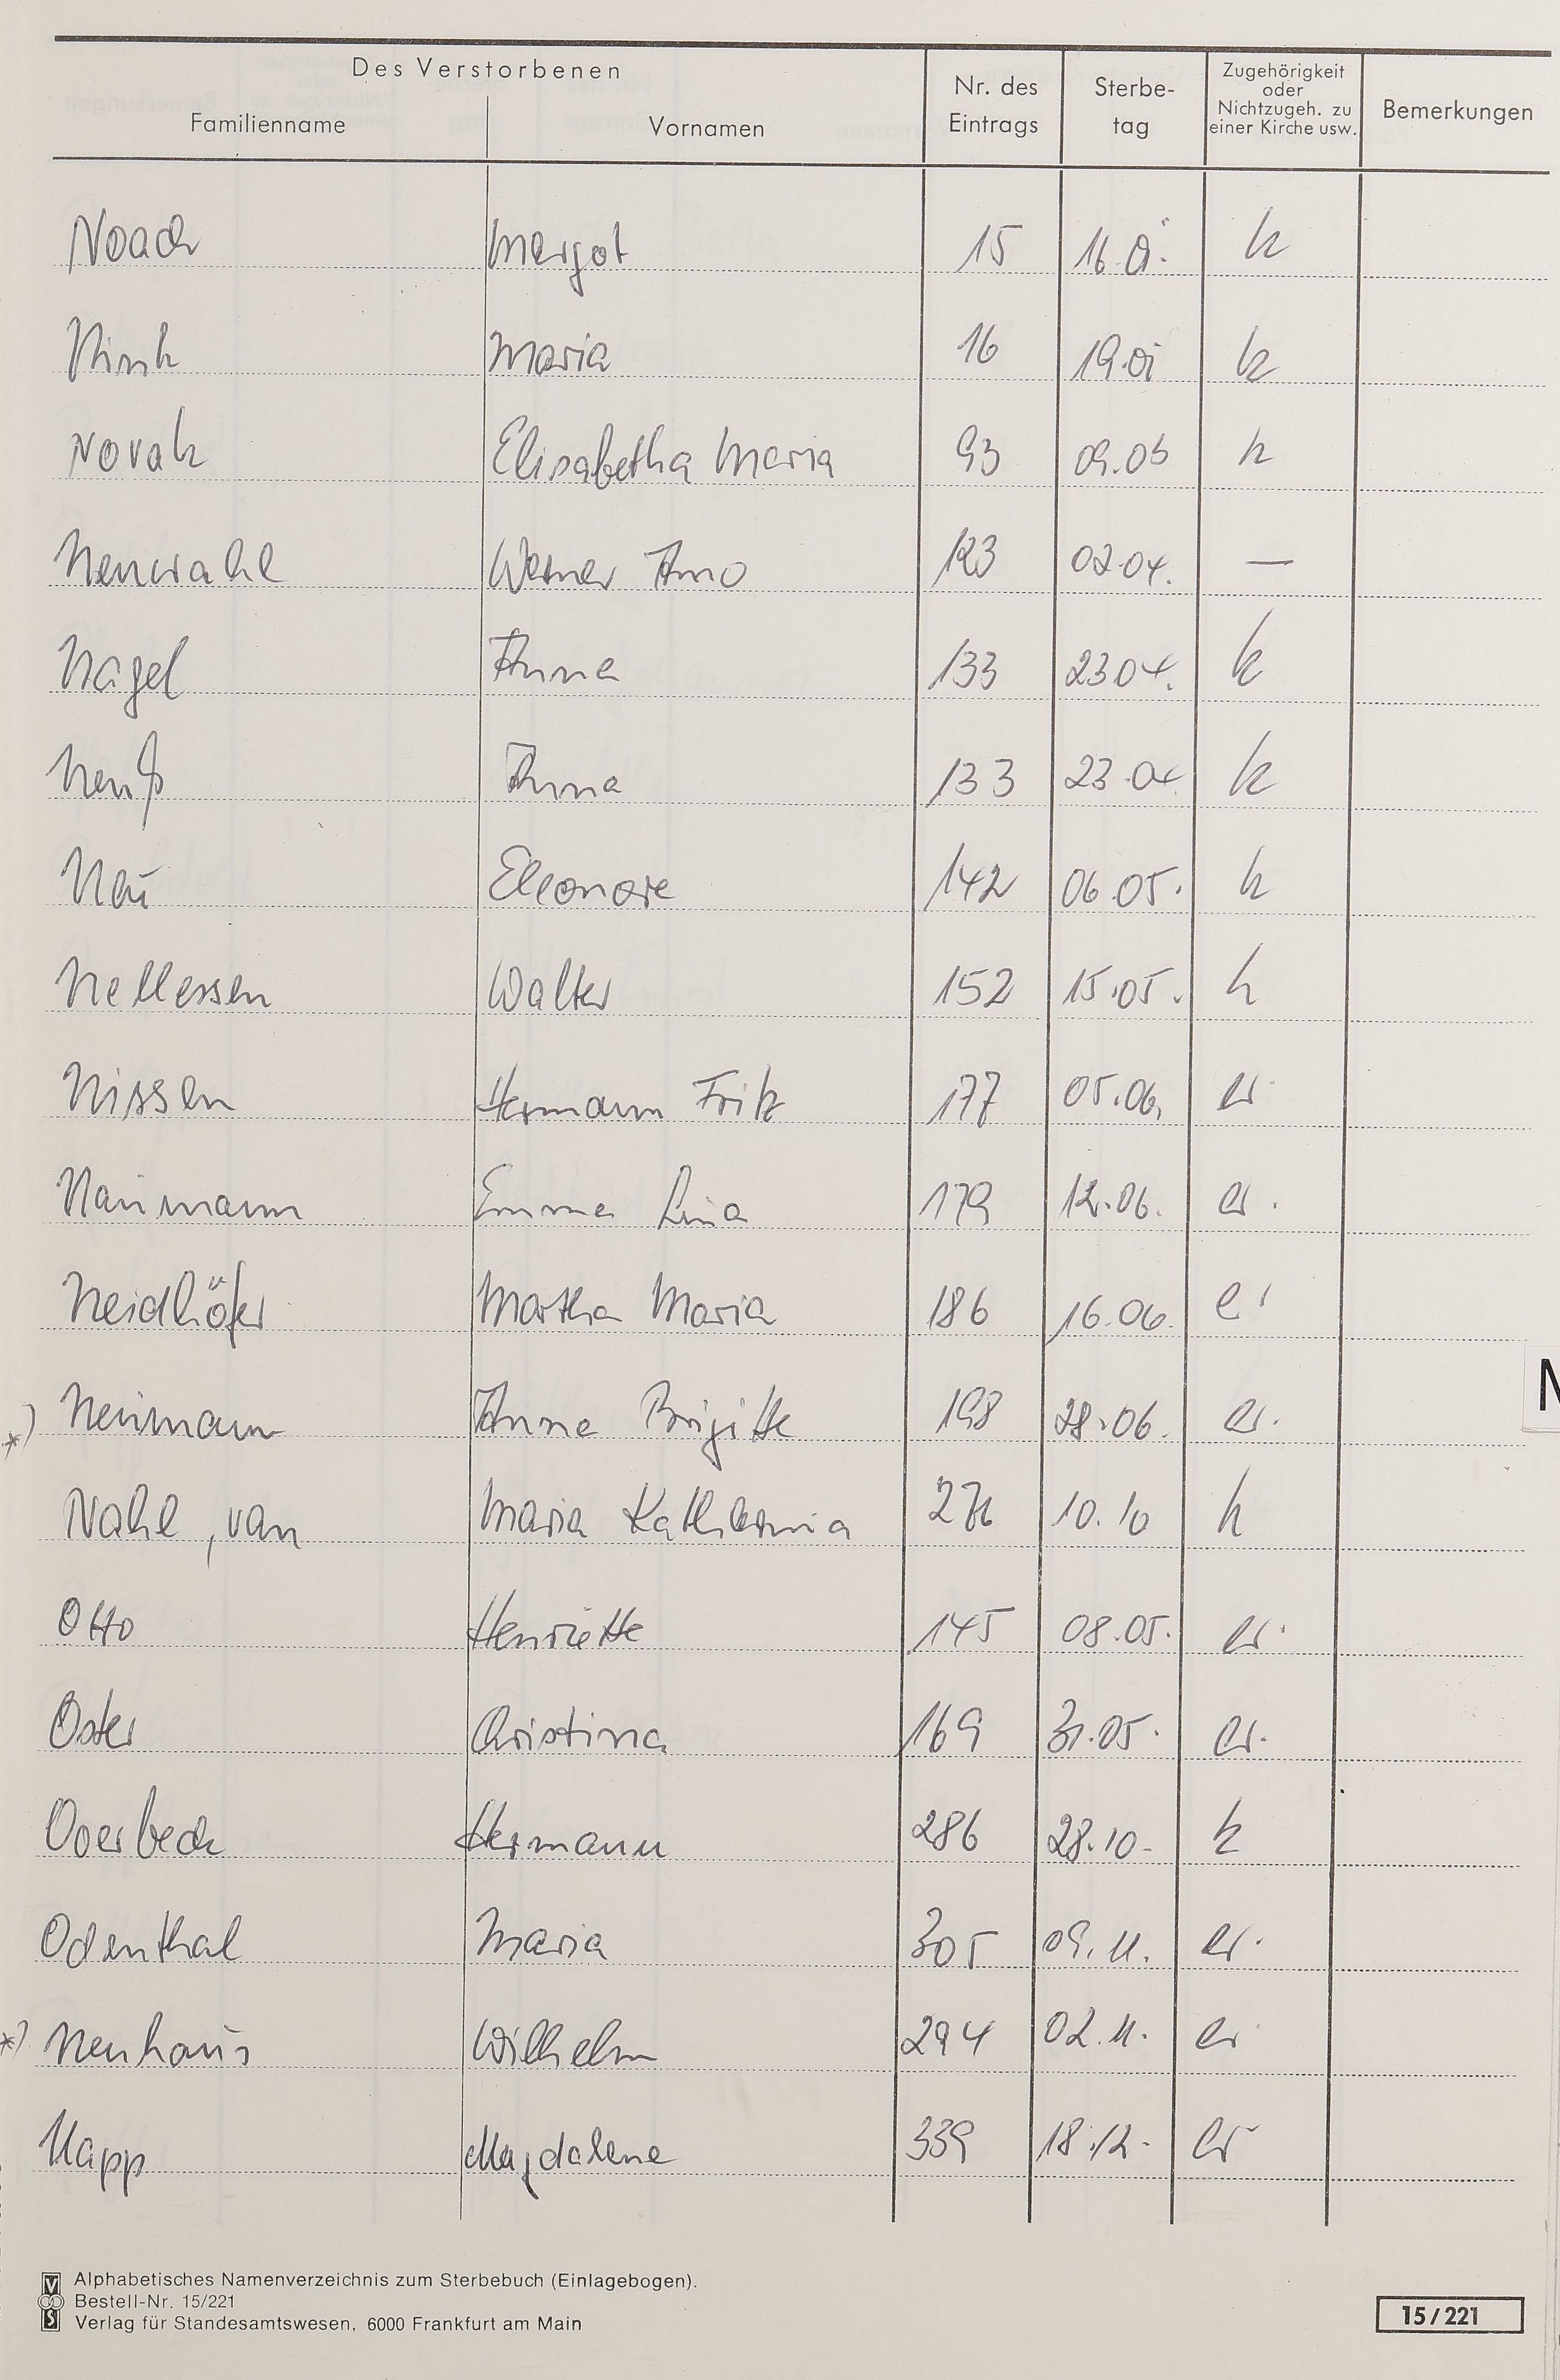 Des Verstorbenen
Familienname Vornamen Nr. des Eintrags Sterbe-tag Zugehörigkeit oder Nichtzugeh. zu einer Kirche usw. Bemerkungen
Noack Margot 15 16.01. k
Nink Maria 16 19.01 k
Novak Elisabetha Maria 93 09.03 k
Neuwahl Werner Arno 123 02.04. —
Nagel Anna 133 23.04. k
Neuß Anna 133 23.04. k
Neu Eleonore 142 06.05. k
Nellessen Walter 152 15.05. k
Nissen Hermann Fritz 177 05.06. ev
Naumann Emma Lina 179 12.06. ev.
Neidhöfer Martha Maria 186 16.06. e
*) Neumann Anna Brigitte 198 28.06. ev.
Nahl, van Maria Katharina 276 10.10 k
Otto Henriette 145 08.05. ev.
Oster Christina 169 31.05. ev.
Overbeck Hermann 286 28.10. k
Odenthal Maria 305 09.11. ev.
*) Neuhaus Wilhelm 294 02.11. ev
Napp Magdalene 339 18.12. ev
N
Alphabetisches Namenverzeichnis zum Sterbebuch (Einlagebogen).
Bestell-Nr. 15/221
Verlag für Standesamtswesen, 6000 Frankfurt am Main
15/221